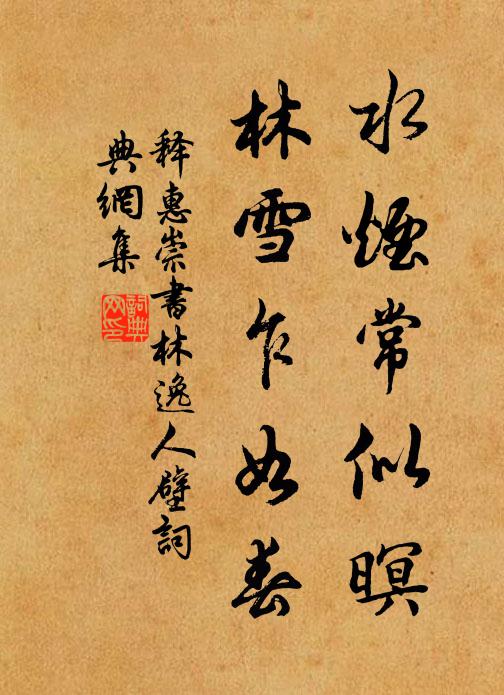 水煙常似暝
林雪乍如春
釋惠崇書林逸人壁詞
典網集
詞典網印